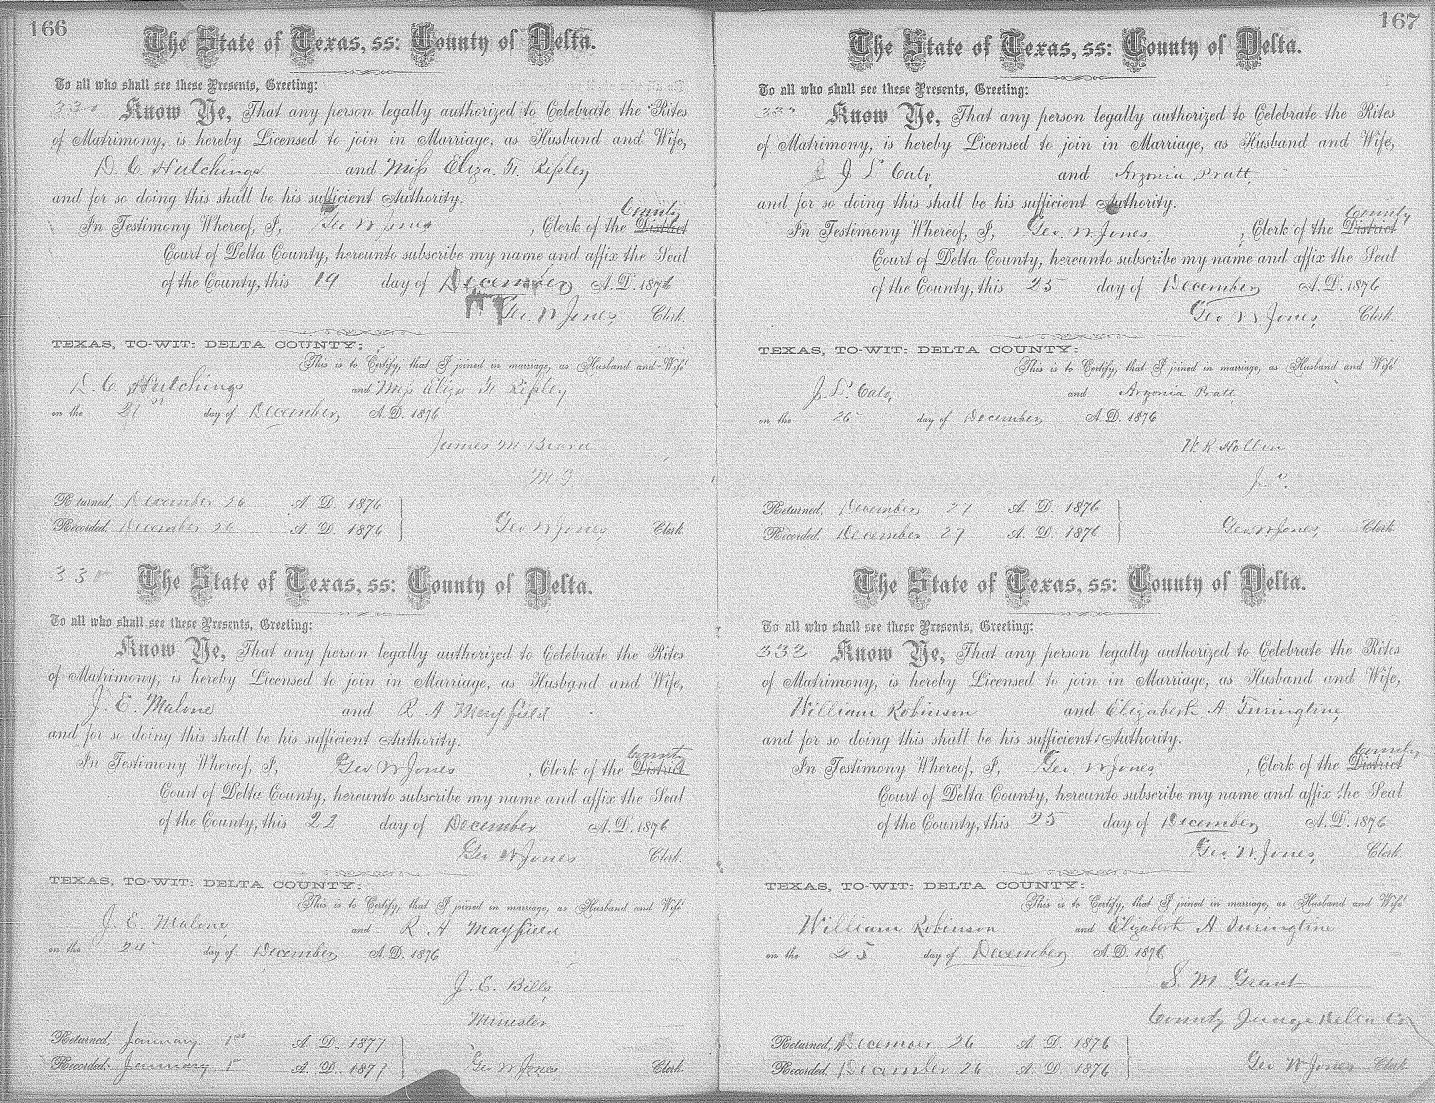 166
The State of Texas, ss: County of Delta.
To all who shall see these Presents, Greeting:
330 Know Ye, That any person legally authorized to Celebrate the Rites
of Matrimony, is hereby Licensed to join in Marriage, as Husband and Wife,
D. C. Hutchings and Miss Eliza. F. Ripley
and for so doing this shall be his sufficient Authority.
In Testimony Whereof, I, Geo W Jones, Clerk of the District County
Court of Delta County, hereunto subscribe my name and affix the Seal
of the County, this 19 day of December A. D. 1876
Geo W Jones, Clerk.
TEXAS, TO-WIT: DELTA COUNTY:
This is to Certify, that I joined in marriage, as Husband and Wife
D. C. Hutchings and Miss Eliza F. Ripley
on the 21st day of December, A. D. 1876
James M Beard
M. G
Returned, December 26 A. D. 1876
Recorded. December 26 A. D. 1876 Geo W Jones, Clerk
330 The State of Texas, ss: County of Delta.
To all who shall see these Presents, Greeting:
Know Ye, That any person legally authorized to Celebrate the Rites
of Matrimony, is hereby Licensed to join in Marriage, as Husband and Wife,
J. E. Malone and R A Mayfield
and for so doing this shall be his sufficient Authority.
In Testimony Whereof, I, Geo W Jones, Clerk of the District County
Court of Delta County, hereunto subscribe my name and affix the Seal
of the County, this 22 day of December A. D. 1876
Geo W Jones Clerk.
TEXAS, TO-WIT: DELTA COUNTY:
This is to Certify, that I joined in marriage, as Husband and Wife
J. E. Malone and R A Mayfield
on the 24 day of December A. D. 1876
J. E. Bills,
Minester
Returned, January 1st A. D. 1877
Recorded. January 1st A. D. 1877 Geo W Jones Clerk
167
The State of Texas, ss: County of Delta.
To all who shall see these Presents, Greeting:
Know Ye, That any person legally authorized to Celebrate the Rites
of Matrimony, is hereby Licensed to join in Marriage, as Husband and Wife,
J and Arzonia Pratt,
and for so doing this shall be his sufficient Authority.
In Testimony Whereof, I, Geo. W Jones, Clerk of the District County
Court of Delta County, hereunto subscribe my name and affix the Seal
of the County, this 25 day of December A. D. 1876
Geo W Jones, Clerk
TEXAS, TO-WIT: DELTA COUNTY:
This is to Certify, that I joined in marriage, as Husband and Wife
J. and Arzonia Pratt
on the 26 day of December A. D. 1876
Returned, December 27 A. D. 1876
Recorded. December 27 A. D. 1876 Geo W Jones, Clerk
The State of Texas, ss: County of Delta.
To all who shall see these Presents, Greeting:
332 Know Ye, That any person legally authorized to Celebrate the Rites
of Matrimony, is hereby Licensed to join in Marriage, as Husband and Wife,
William Robinson and Elizabeth A Turringtine,
and for so doing this shall be his sufficient Authority.
In Testimony Whereof, I, Geo. W Jones, Clerk of the District County
Court of Delta County, hereunto subscribe my name and affix the Seal
of the County, this 25 day of December A. D. 1876
Geo. W. Jones, Clerk.
TEXAS, TO-WIT: DELTA COUNTY:
This is to Certify, that I joined in marriage, as Husband and Wife
William Robinson and Elizabeth A Turringtine
on the 25 day of December A. D. 1876
S. M Grant
County Judge Delta Co
Returned, December 26 A. D. 1876
Recorded. December 26 A. D. 1876 Geo W Jones Clerk